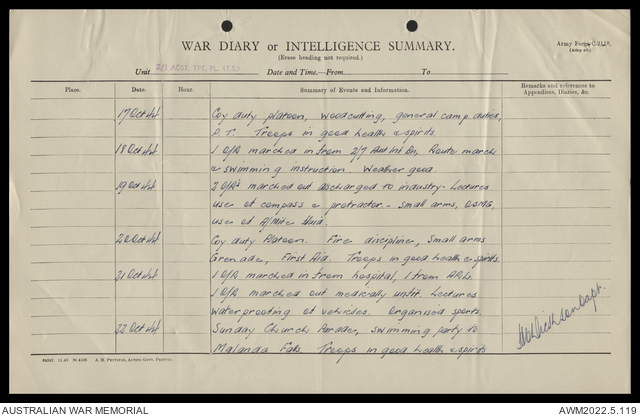 WAR DIARY or INTELLIGENCE SUMMARY.
(Erase heading not required.)
Army Form C.2118.
(Adapted)
Unit 2/1 AUST. TPT. PL. (T.S.) Date and Time.—From To
Place. Date. Hour. Summary of Events and Information. Remarks and references to Appendices, Diaries, &c.
17 Oct 44 Coy duty platoon, woodcutting, general camp duties,
P.T. Troops in good health & spirits.
18 Oct 44 1 O/R marched in from 2/7 Aust Inf Bn, Route march
& swimming instruction. Weather good.
19 Oct 44 2 O/R's marched out discharged to industry - Lectures
use of compass & protractor. - Small arms,
use of
20 Oct 44 Coy duty Platoon. Fire discipline, Small arms
Grenade, First Aid. Troops in good health & spirits.
21 Oct 44 1 O/R marched in from hospital, 1 from
1 O/R marched out medically unfit. Lectures
waterproofing of vehicles. Organised sports.
22 Oct 44 Sunday Church Parade, swimming party to
Malanda Falls. Troops in good health & spirits
Capt.
A. H. PETTIFER, ACTING GOVT. PRINTER.
AUSTRALIAN WAR MEMORIAL
AWM2022.5.119